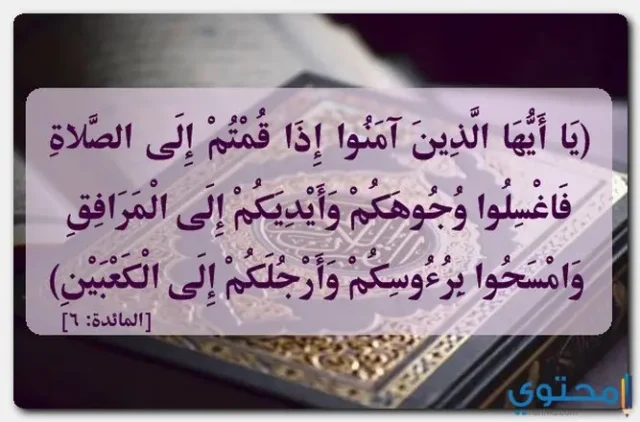 (يَا أَيُّهَا الَّذِينَ آمَنُوا إِذَا قُمْتُمْ إِلَى الصَّلاةِ
فَاغْسِلُوا وُجُوهَكُمْ وَأَيْدِيَكُمْ إِلَى الْمَرَافِقِ
وَامْسَحُوا بِرُءُوسِكُمْ وَأَرْجُلَكُمْ إِلَى الْكَعْبَيْنِ)
[المائدة: ٦]
محتوي